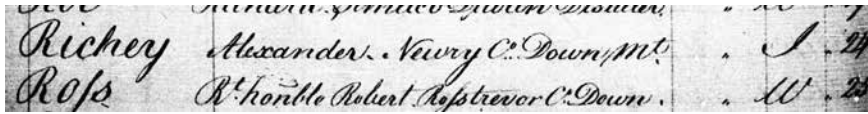 Richey Alexander. Newry Co. Down, Mt. " I " 24
Ross Rt. honble Robert Rosstrevor Co. Down. " W "